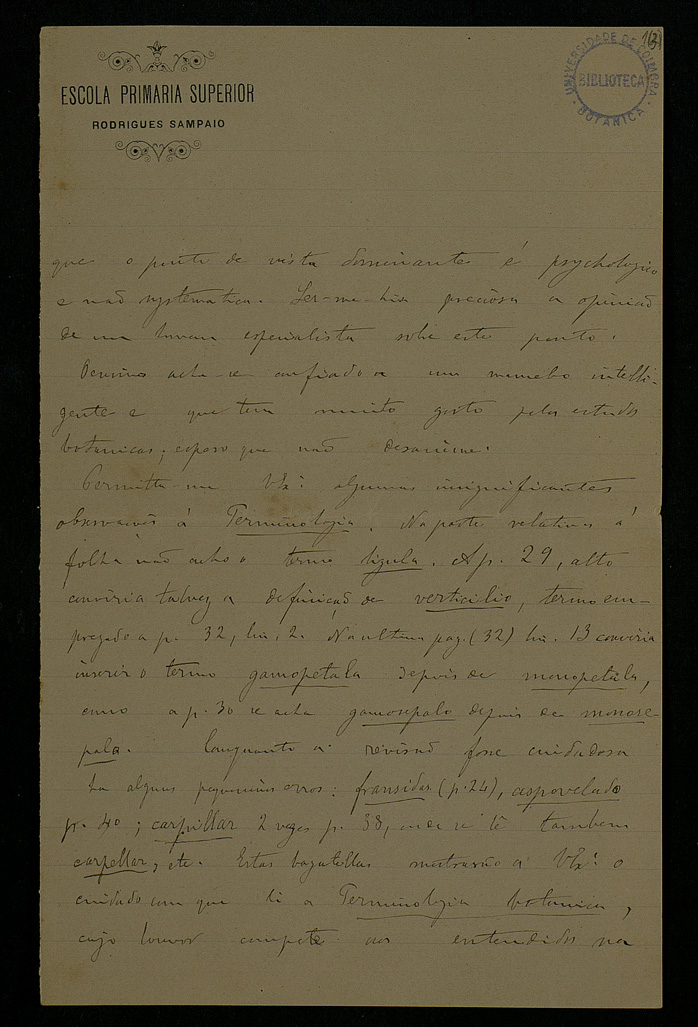 13
UNIVERSIDADE DE COIMBRA
BIBLIOTECA
BOTANICA
ESCOLA PRIMARIA SUPERIOR
RODRIGUES SAMPAIO
que o ponto de vista dominante é psychologico
e não systematico. Ser-me-hia preciosa a opinião
de um homem especialista sobre este ponto.
acha-se confiado a um mancebo intelli-
gente e que tem muito gosto pelos estudos
botanicos; espero que não desanime.
Permitta-me V. Ex.ª algumas insignificantes
observações á Terminologia. Na parte relativa á
folha não acho o termo ligula. A p. 29, alto
conviria talvez a definição de verticilio, termo em-
pregado a p. 32, lin. 2. Na ultima pag. (32) lin. 13 conviria
inserir o termo gamopetala depois de monopetala,
como a p. 30 se acha gamosepalo depois de monose-
pala. Comquanto a revisão fosse cuidadosa
ha alguns pequenos erros: fransidas (p. 24), aspovelado
p. 40; carpillar 2 vezes p. 38, onde se lê tambem
carpellar, etc. Estas bagatellas mostrarão a V. Ex.ª o
cuidado com que li a Terminologia botanica,
cujo louvor compete aos entendidos na